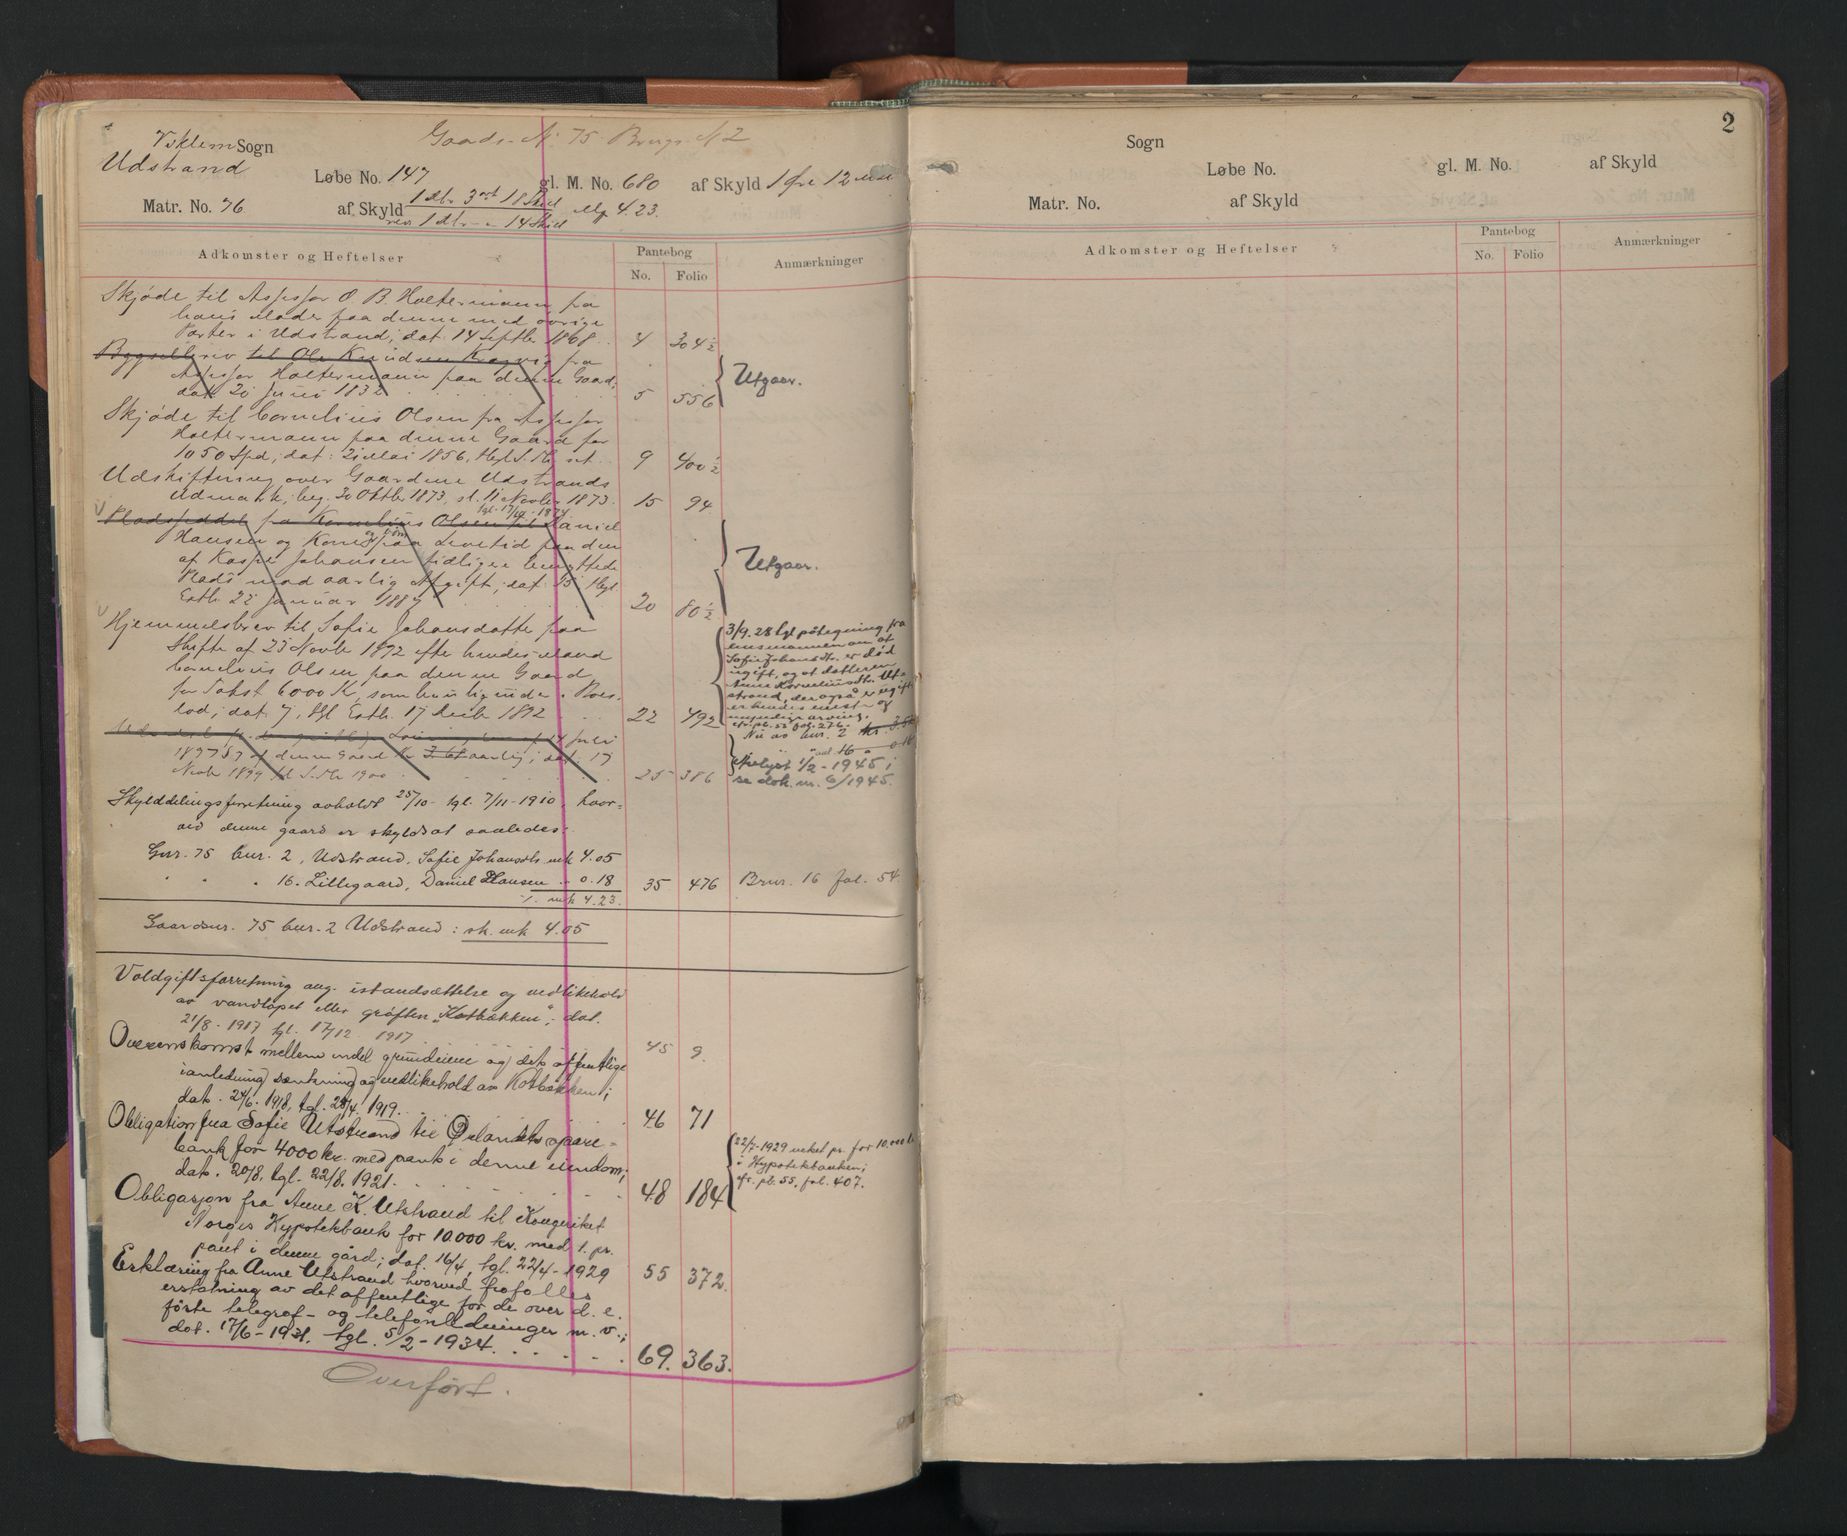 Gaards-N. 75 Brugs-N 2
Viklem Sogn
Udstrand
Løbe No. 147 gl. M. No. 680 af Skyld 1 Øre 12 mrk
Matr. No. 76 af Skyld 1 Dlr 3 ort 18 Skil
rev. 1 Dlr - " - 14 Skil Mk 4.23.
Adkomster og Heftelser
Pantebog
No. Folio
Anmærkninger
Skjøde til Assessor O. B. Holtermann fra
hans Moder paa denne med øvrige
Parter i Udstrand; dat. 14 Septbr 1868. 4 304 1/2
Bygselbrev til Ole Knudsen fra
Assessor Holtermann paa denne Gaard;
dat. 20 Juni 1832 5 556
Utgaar.
Skjøde til Cornelius Olsen fra Assessor
Holtermann paa denne Gaard for
1050 Spd, dat: 2 Mai 1856, 9 400 1/2
Udskiftning over Gaardene Udstrands
Udmark, beg. 20 Oktbr 1873, sl. 11 Novbr 1873. 15 94
tgl. 17/ 1874
Pladsseddel fra Kornelius Olsen til Daniel
Hansen og Kone paa Levetid paa den
af Kasper Johansen tidligere benyttede
Plads mod aarlig Afgift; dat. 15, tgl.
Estb. 22 Januar 1887 20 80 1/2
Utgaar.
Hjemmelsbrev til Sofie Johansdatter paa
Skifte af 23 Novbr 1892 efter hendes Mand
Cornelius Olsen paa denne Gaard
for Takst 6000 K, som
lod; dat. 7, tgl. Estb. 17 Decbr 1892 22 492
3/9.28 tgl påtegning fra
lensmannen om at
Sofie Johansdtr. er død
ugift, og at datteren
Anne Korneliusdtr. Ut-
strand, der også er ugift
er hendes eneste og
myndige arving.
cfr. pb. 55 fol. 276.
Nu av bnr. 2 kr. 3.
1897 af denne Gaard Kr aarlig; dat. 17
Novbr 1899 tgl 1900 25 386
Avlyst 1/2-1945;
se dok. nr. 6/1945.
Skylddelingsforretning avholdt 25/10 - tgl. 7/11-1910, hvor=
ved denne gaard er skyldsat saaledes:
Gnr. 75 bnr. 2, Udstrand, Sofie Johansdtr. mk 4.05
" " " 16. Lillegaard, Daniel Hansen " 0.18 35 476 Brnr. 16 fol. 54.
mk 4.23.
Gaardsnr. 75 bnr. 2 Udstrand: sk. mk 4.05
Voldgiftsforretning ang. istandsættelse og vedlikehold
av vandløpet eller grøften "Kotbækken"; dat.
21/8 - 1917 tgl. 17/12 1917. 45 9.
Overenskomst mellem endel grundeiere og det offentlige
i anledning sænkning og vedlikehold av Kotbækken;
dat. 24/6. 1918, tgl. 28/4. 1919. 46 71
Obligation fra Sofie Utstrand til Ørlandets spare-
bank for 4000 kr. med pant i denne eiendom;
dat. 20/8, tgl. 22/8. 1921. 48 184
22/7-1929 veket pr. for 10.000 kr
i Hypotekbanken;
cfr. pb. 55, fol. 407.
Obligasjon fra Anne K. Utstrand til Kongeriket
Norges Hypotekbank for 10.000 kr. med 1. pr.
pant i denne gård; dat. 16/4, tgl. 22/4-1929 55 372.
Erklæring fra Anne Utstrand hvorved frafalles
erstatning av det offentlige for de over d. e.
førte telegraf- og telefonledninger m. v.;
dat. 17/6-1931. tgl. 5/2-1934. 69. 363.
Overført.
2
Sogn
Løbe No. gl. M. No. af Skyld
Matr. No. af Skyld
Adkomster og Heftelser
Pantebog
No. Folio
Anmærkninger